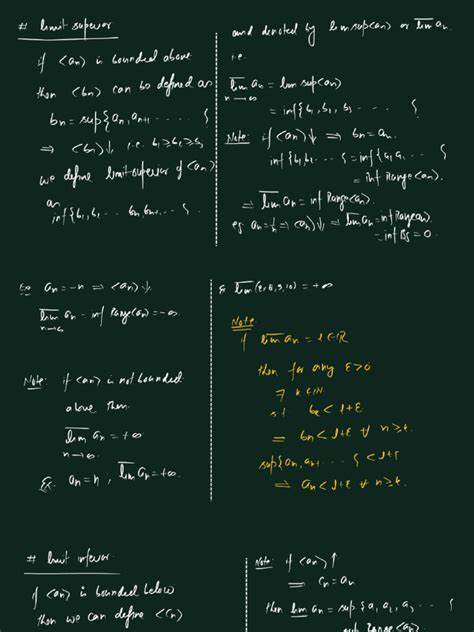 # limit superior
if <an> is bounded above
then <bn> can be defined as
bn = sup{an, an+1 - - - - }
⇒ <bn>↓ i.e. b1 ≥ b2 ≥ b3
we define limit superior of <an>
as
inf{b1, b2 - - - bn, bn+1 - - }
and denoted by limsup<an> or l̅i̅m̅ an
i.e.
l̅i̅m̅ an = lim sup<an>
n→∞
= inf{b1, b2, b3 - - - - }
Note: if <an>↓ ⇒ bn = an
inf{b1, b2 - - - } = inf{a1, a2 - - - }
= inf Range<an>.
⇒ l̅i̅m̅ an = inf Range<an>.
eg an = 1/n ⇒ <an>↓ ⇒ l̅i̅m̅ an = inf Range<an>
= inf = 0.
Ex an = -n ⇒ <an>↓
l̅i̅m̅ an = inf Range<an> = -∞
n→∞
Note: if <an> is not bounded
above then
l̅i̅m̅ an = +∞
n→∞
Ex. an = n ; l̅i̅m̅ an = +∞
= +∞
Note:
if l̅i̅m̅ an = l ∈ ℝ
then for any ε > 0
∃ k ∈ ℕ
s.t bk < l+ε
⇒ bn < l+ε ∀ n ≥ k
sup{an, an+1 - - - } < l+ε
⇒ an < l+ε ∀ n ≥ k.
# limit inferior
if <an> is bounded below
then we can define <cn>
Note: if <an>↑
⇒ cn = an
then l̲i̲m̲ an = sup{a1, a2, a3 - - -
sup Range<an>